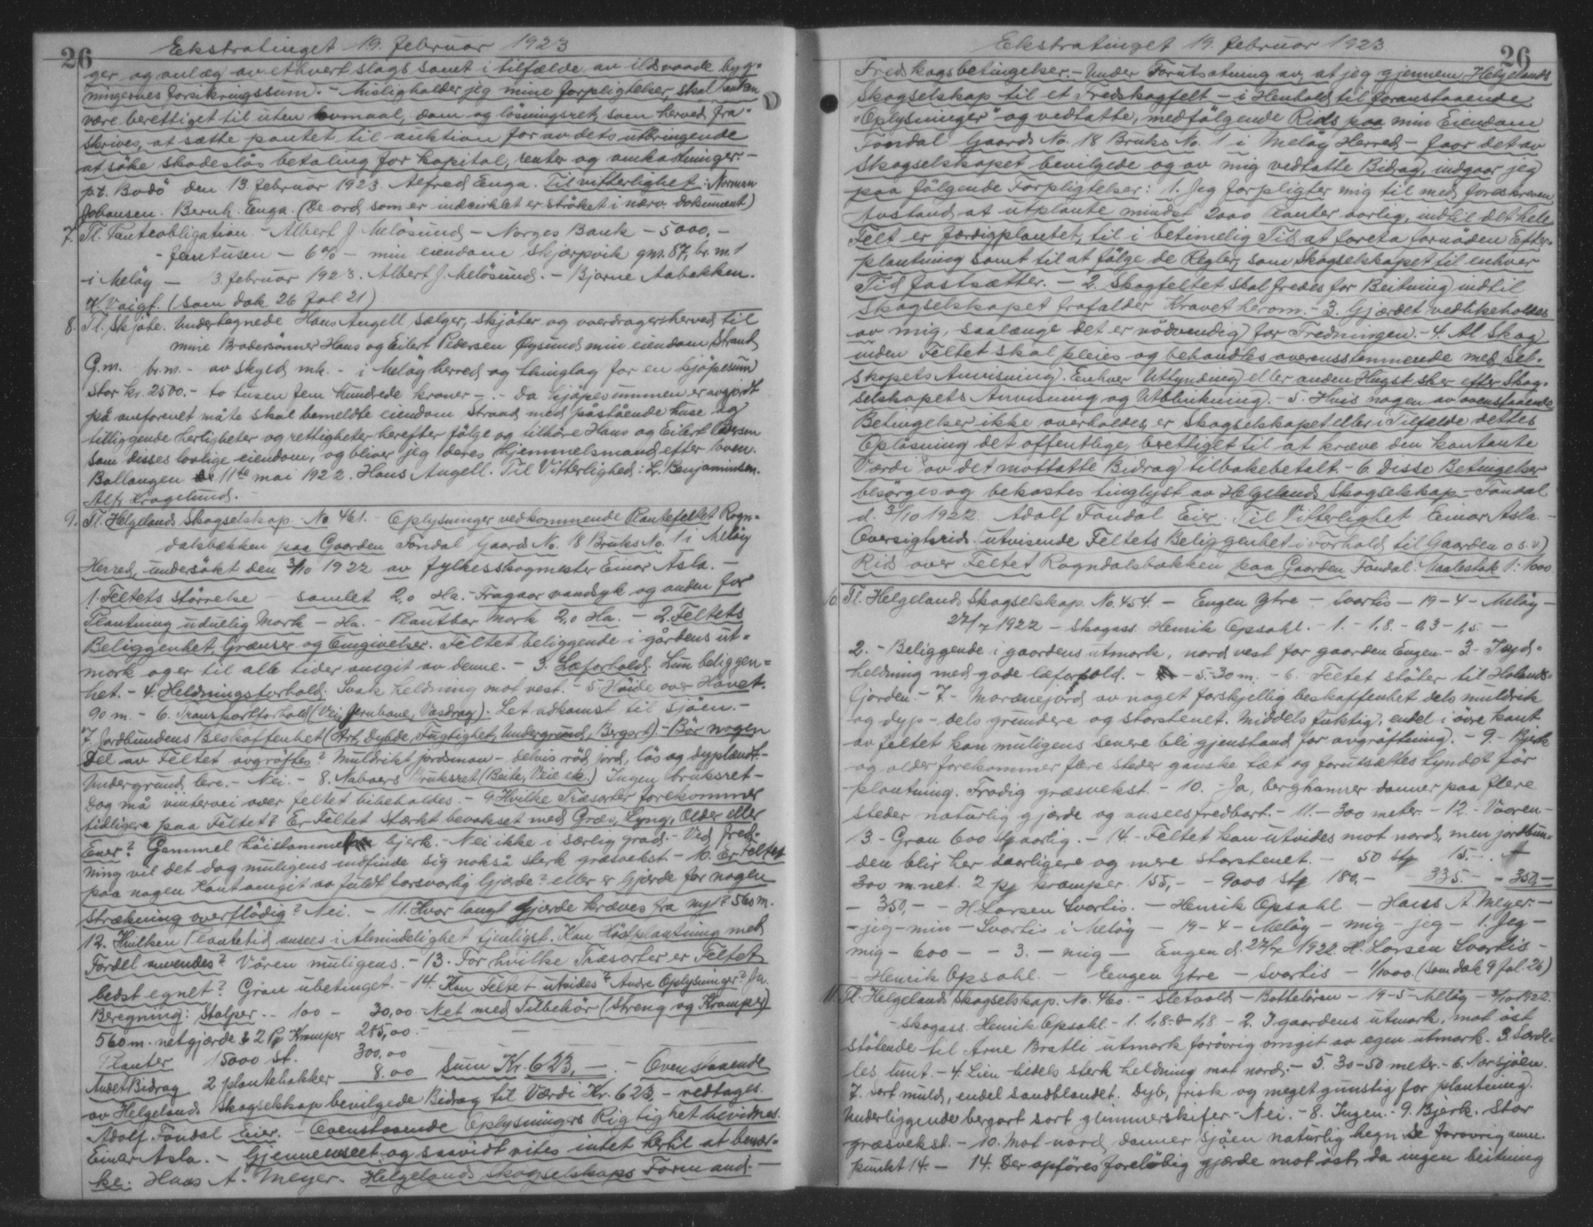 26
Ekstratinget 19. februar 1923
ger og anlæg av ethvert slags samt i tilfælde av ildsvaade byg-
ningernes forsikringssum. - Misligholder jeg mine forpligtelser skal banken
være berettiget til uten lovmaal, dom og løsningsret, som herved fra-
skrives, at sætte pantet til auktion for av dets utbringende
at søke skadesløs betaling for kapital, renter og omkostninger. -
p.t. Bodø den 13. februar 1923. Alfred Enga. Til vitterlighet: Norman
Johansen. Bernh. Enga. (De ord som er indcirklet er strøket i nærv. dokument)
7. Tl. Panteobligation. - Albert J. Meløsund - Norges Bank - 5000,-
- femtusen - 6% - min eiendom Skjærpvik gno. 87, br. no 1
i Meløy - 3. februar 1923. Albert J. Meløsund. - Bjarne Aabakken.
(som dok. 26 fol 21)
8. Tl. Skjøte. Undertegnede Hans Angell, sælger, skjøter og overdrager herved til
mine Brodersønner Hans og Eilert Pedersen Øysund min eiendom Strand
G.m. br.m. - av skyld mk. - i Meløy herred og tinglag for en kjøpesum
stor kr. 2500.- to tusen fem hundrede kroner - . - Da kjøpesummen er avgjort
på omforenet måte skal bemeldte eiendom Strand med påstående huse og
tilliggende herligheter og rettigheter herefter følge og tilhøre Hans og Eilert Pedersen
som disses lovlige eiendom, og bliver jeg deres hjemmelsmand efter loven.
Ballangen 11te mai 1922. Hans Angell. Til Vitterlighed: L. Benjaminsen.
Alf Kragelund.
9. Tl. Helgelands Skogselskap. No 461. - Oplysninger vedkommende Plantefeltet Rogn-
dalsbækken paa Gaarden Fondal Gaards No. 18 Bruks No. 1 i Meløy
Herred, undersøkt den 3/10 1922 av fylkesskogmester Einar Asla. -
1. Feltets størrelse samlet 2,0 Ha. - Fragaar vandsyk og anden for
Plantning uduelig Mark - Ha. - Plantbar Mark 2,0 Ha. - 2. Feltets
Beliggenhet, Grænser og Omgivelser. Feltet beliggende i gårdens ut-
mark og er til alle sider omgit av denne. - 3. Læforhold. Lun beliggen-
het. - 4. Heldningsforhold. Svak heldning mot vest. - 5 Høide over Havet.
90 m. - 6. Transportforhold (Vei, Jernbane, Vasdrag). Let adkomst til sjøen. -
7. Jordbundens Beskaffenhet (Art, Dybde, Fugtighet, Undergrund, Bergart) - Bør nogen
Del av Feltet avgrøftes? Muldrikt jordsmon - delvis rød jord, løs og dyplændt. -
Undergrund lere. - Nei. - 8. Naboers Bruksret (Beite, Veie etc.) Ingen bruksret -
Dog må vintervei over feltet bibeholdes. - 9. Hvilke Træsorter forekommer
tidligere paa Feltet? Er Feltet stærkt bevokset med Græs, Lyng, Older eller
Ener? Gammel høistammet bjerk. - Nei ikke i særlig grad. - Ved fred-
ning vil det dog muligens indfinde sig nokså sterk græsvekst. - 10. Er Feltet
paa nogen Kant omgit av fuldt forsvarlig Gjærde? eller er Gjærde for nogen
strækning overflødig? Nei. - 11. Hvor langt Gjærde kræves fra nyt? 560 m.
12. Hvilken Plantetid ansees i Almindelighet tjenligst. Kan Høstplantning med
Fordel anvendes? Våren muligens. - 13. For hvilke Træsorter er Feltet
bedst egnet? Gran ubetinget. - 14. Kan Feltet utvides? Andre Oplysninger? Ja.
Beregning: Stolper . . 100 - 30,00. Net med Tilbehør (Streng og Kramper)
560 m. netgjærde & 2 Pk Kramper 285,00. -
Planter 5000 st. 300,00
Andet Bidrag 2 plantehakker 8.00 Sum Kr. 623,- - Ovenstaaende
av Helgelands Skogselskap bevilgede Bidrag til Værdi Kr. 623,- vedtages.
Adolf Fondal Eier. - Ovenstaaende Oplysningers Rigtighet bevidnes.
Einar Asla. - Gjennemseet og saavidt vites intet hertil at bemær-
ke. Hans A. Meyer. Helgelands Skogselskaps Formand. -
26
Ekstratinget 19. februar 1923
Fredskogsbetingelser. - Under Forutsætning av, at jeg gjennem Helgelands
Skogselskap til et Fredskogfelt - i Henhold til foranstaaende
"Oplysninger" og vedtatte, medfølgende Rids paa min Eiendom
Fondal Gaards No. 18 Bruks No. 1 i Meløy Herred - faar det av
Skogselskapet bevilgede og av mig vedtatte Bidrag, indgaar jeg
paa følgende Forpligtelser: 1. Jeg forpligter mig til med foreskreven
Avstand at utplante mindst 2000 Planter aarlig, indtil det hele
Felt er færdigplantet, til i betimelig Tid at foreta fornøden Efter-
plantning samt til at følge de Regler, som Skogselskapet til enhver
Tid fastsætter. - 2. Skogfeltet skal fredes for Beitning indtil
Skogselskapet frafalder Kravet herom. - 3. Gjærdet vedlikeholdes
av mig, saalænge det er nødvendig for Fredningen. - 4. Al Skog
inden Feltet skal pleies og behandles overensstemmende med Sel-
skapets Anvisning. Enhver Uttynding eller anden Hugst sker efter Skog-
selskapets Anvisning og Utblinkning. - 5. Hvis nogen av ovenstaaende
Betingelser ikke overholdes, er Skogselskapet eller i Tilfelde dettes
Opløsning det offentlige, berettiget til at kræve den kontante
Værdi av det mottatte Bidrag tilbakebetalt. - 6. Disse Betingelser
besørges og bekostes tinglyst av Helgelands Skogselskap - Fondal
d. 3/10 1922. Adolf Fondal Eier. Til Vitterlighet Einar Asla -
Oversigtsrids utvisende Feltets Beliggenhet i Forhold til Gaarden o.s.v.)
Rids over Feltet Rogndalsbakken paa Gaarden Fondal. Maalestok 1:1000
10. Tl. Helgelands Skogselskap. No. 454. - Engen Ytre - Svartis - 19 - 4 - Meløy -
27/7 1922 - Skogass. Henrik Opsahl. - 1. - 1,8. - 0,3 - 1,5. -
2. - Beliggende i gaardens utmark, nord vest for gaarden Engen - 3 - Syd-
heldning med gode læforhold. - - 5. 30 m. - 6. Feltet støter til Holands-
fjorden - 7 - Morænejord av noget forskjellig beskaffenhet dels muldrik
og dyp - dels grundere og storstenet. Middels fuktig, endel i øvre kant
av feltet kan muligens senere bli gjenstand for avgrøftning. - 9. - Bjerk
og older forekommer flere steder ganske tæt og forutsættes tyndet før
plantning. Frodig græsvekst. - 10. Ja, berghamrer danner paa flere
steder naturlig gjærde og ansees fredbart. - 11. - 300 meter - 12 - Vaaren -
13 - Gran 600 stk aarlig. - 14. - Feltet kan utvides mot nord, men jordbun-
den blir her daarligere og mere storstenet. - 50 stk 15.- -
300 m. net. 2 pk kramper 155,- - 9000 stk 180,- 335.- - 350,-
- 350,- - H Larsen Svartis. - Henrik Opsahl - Hans A Meyer. -
- jeg - min - Svartis i Meløy - 19 - 4 - Meløy - mig - jeg - 1. Jeg -
mig - 600 - - 3. - mig - Engen d. 27/7 1922. H. Larsen Svartis -
- Henrik Opsahl. - Engen Ytre - Svartis - 1/1000. (som dok 9 fol. 26)
11. Tl. Helgelands Skogselskap. No. 460. - Sletvold - Bottelvren - 19 - 5 - Meløy - 1922.
- Skogass. Henrik Opsahl - 1. 1,8. 1,8 - 2. I gaardens utmark, mot øst
støtende til Arne Bratli utmark forøvrig omgit av egen utmark. 3.
lunt. - 4. sterk heldning mot nord. - 5. 30 - 50 metr. - 6. Nær sjøen.
7. Sort muld, endel sandblandet. Dyb, frisk og meget gunstig for plantning.
Underliggende bergart sort glimmerskifer - Nei. - 8. Ingen. - 9. Bjerk. Stor
græsvekst. - 10. Mot nord danner sjøen naturlig hegn. Se forøvrig anm.
punkt 14. - 14. Der opføres foreløbig gjærde mot øst, da ingen beitning